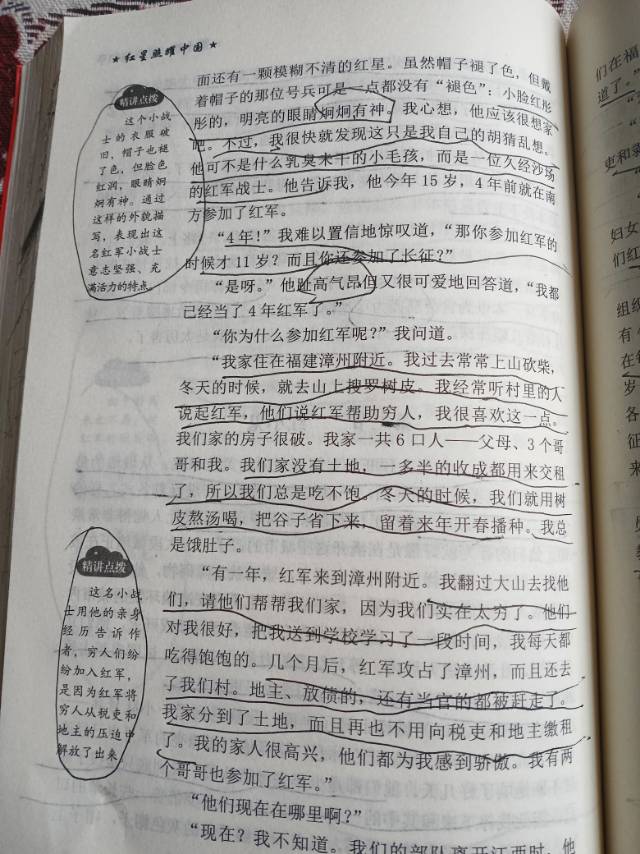 ★红星照耀中国★
面还有一颗模糊不清的红星。虽然帽子褪了色，但戴
着帽子的那位号兵可是一点都没有“褪色”：小脸红彤
彤的，明亮的眼睛炯炯有神。我心想，他应该很想家
吧。不过，我很快就发现这只是我自己的胡猜乱想。
他可不是什么乳臭未干的小毛孩，而是一位久经沙场
的红军战士。他告诉我，他今年15岁，4年前就在南
方参加了红军。
“4年！”我难以置信地惊叹道，“那你参加红军的
时候才11岁？而且你还参加了长征？”
“是呀。”他趾高气昂但又很可爱地回答道，“我都
已经当了4年红军了。”
“你为什么参加红军呢？”我问道。
“我家住在福建漳州附近。我过去常常上山砍柴，
冬天的时候，就去山上搜罗树皮。我经常听村里的人
说起红军，他们说红军帮助穷人，我很喜欢这一点。
我们家的房子很破。我家一共6口人——父母、3个哥
哥和我。我们家没有土地，一多半的收成都用来交租
了，所以我们总是吃不饱。冬天的时候，我们就用树
皮熬汤喝，把谷子省下来，留着来年开春播种。我总
是饿肚子。
“有一年，红军来到漳州附近。我翻过大山去找他
们，请他们帮帮我们家，因为我们实在太穷了。他们
对我很好，把我送到学校学习了一段时间，我每天都
吃得饱饱的。几个月后，红军攻占了漳州，而且还去
了我们村。地主、放债的，还有当官的都被赶走了。
我家分到了土地，而且再也不用向税吏和地主缴租
了。我的家人很高兴，他们都为我感到骄傲。我有两
个哥哥也参加了红军。”
“他们现在在哪里啊？”
“现在？我不知道。我们的部队离开江西时，他
精讲点拨
这个小战
士的衣服破
旧，帽子也褪
了色，但脸色
红润，眼睛炯
炯有神。通过
这样的外貌描
写，表现出这
名红军小战士
意志坚强、充
满活力的特点。
精讲点拨
这名小战
士用他的亲身
经历告诉作
者，穷人们纷
纷加入红军，
是因为红军将
穷人从税吏和
地主的压迫中
解放了出来。
们在福
道了。
更和
妇女
们红
组织
有
在
岁
各
征
来